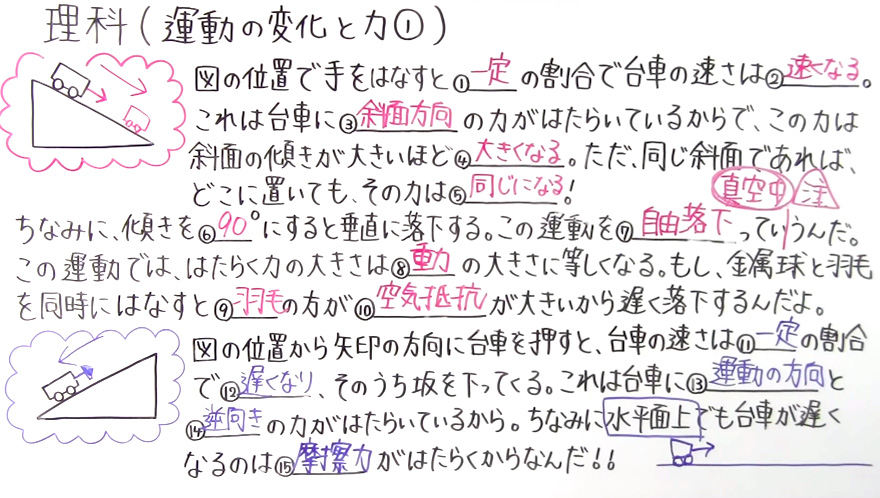 理科(運動の変化と力①)
図の位置で手をはなすと①一定の割合で台車の速さは②速くなる。
これは台車に③斜面方向の力がはたらいているからで、この力は
斜面の傾きが大きいほど④大きくなる。ただ、同じ斜面であれば、
どこに置いても、その力は⑤同じになる!
真空中 注
ちなみに、傾きを⑥90°にすると垂直に落下する。この運動を⑦自由落下っていうんだ。
この運動では、はたらく力の大きさは⑧動力の大きさに等しくなる。もし、金属球と羽毛
を同時にはなすと⑨羽毛の方が⑩空気抵抗が大きいから遅く落下するんだよ。
図の位置から矢印の方向に台車を押すと、台車の速さは⑪一定の割合
で⑫遅くなり、そのうち坂を下ってくる。これは台車に⑬運動の方向と
⑭逆向きの力がはたらいているから。ちなみに水平面上でも台車が遅く
なるのは⑮摩擦力がはたらくからなんだ!!